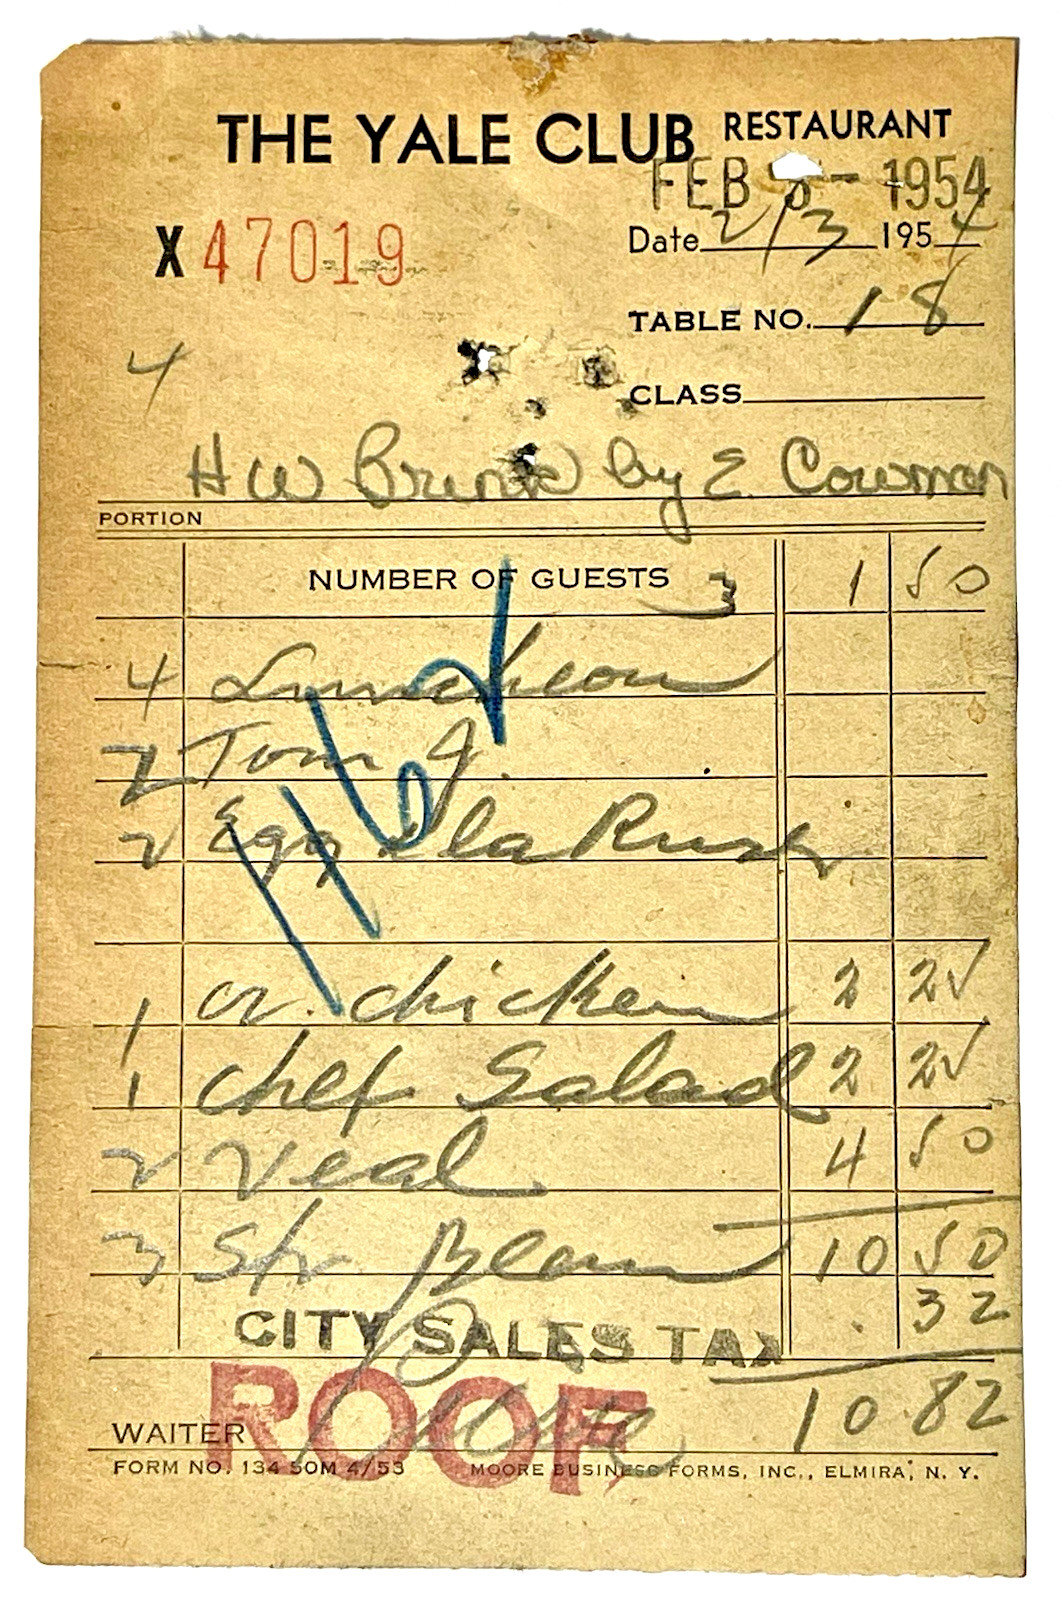 THE YALE CLUB RESTAURANT
FEB - 1954
X 47019
Date 2/3 1954
TABLE NO. 18
4
CLASS
H W by E. Cowman
PORTION
NUMBER OF GUESTS 3 1 50
4 Luncheon
2 Tom J.
2 Egg a la Russ
1 cr. chicken 2 25
1 Chef Salad 2 25
2 Veal 4 50
3 Str Bean 10 50
CITY SALES TAX . 32
ROOF
10 82
WAITER
FORM NO. 134 50M 4/53 MOORE BUSINESS FORMS, INC., ELMIRA, N. Y.